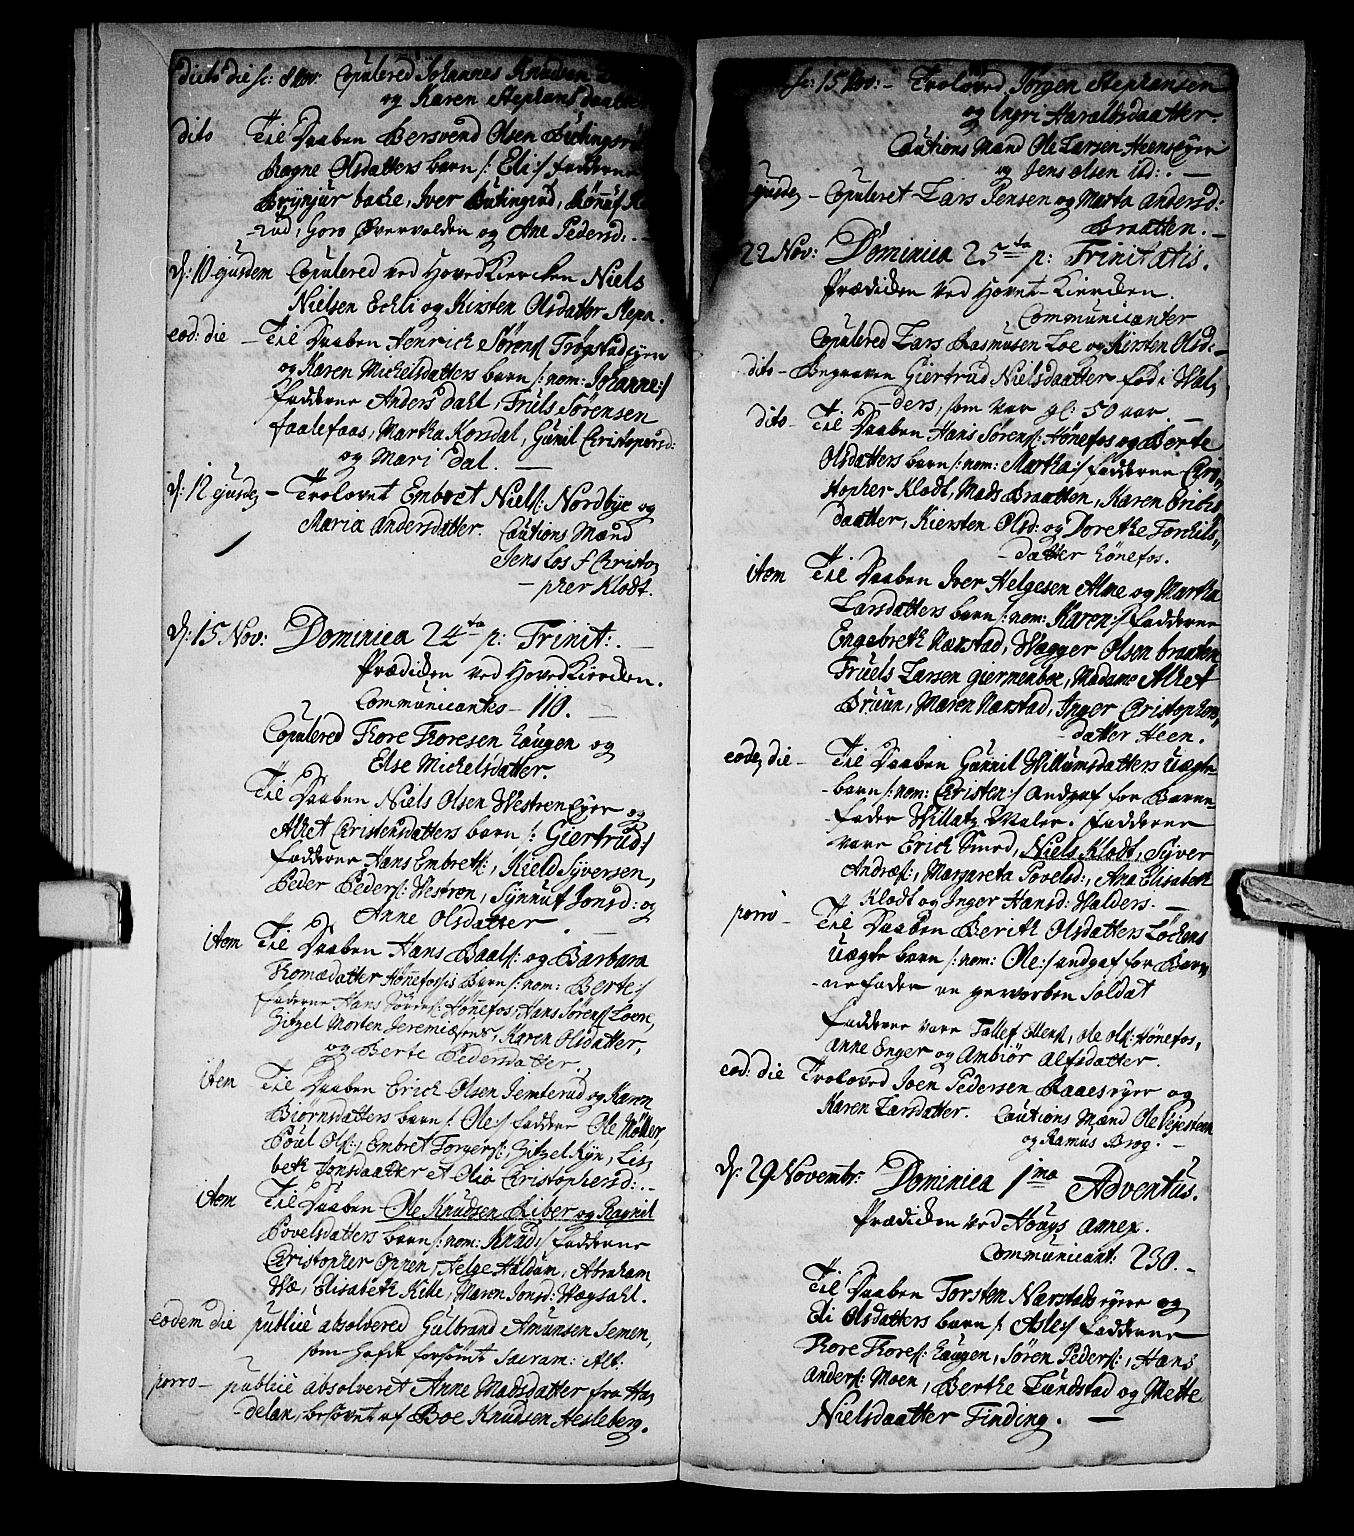 dito die sc: 8 Nov: Copulered Johannes Knudsen
og Karen Stephans daatter
dito Til Daaben Bersvend Olsen
Ragne Olsdatters barn /: Eli :/ fadderne
Brynjur bache, Iver Butingrud,
rud, Goro Øvervolden og Ane Pedersd: . –
d: 10 ejusdem Copulered ved HovedKierchen Niels
Nielsen Echli og Kirsten Olsdatter Mepn.
eod: die – Til Daaben Henrich Sörens: Trøgstadeyen
og Karen Michelsdatters barn /: nom: Johanne :/
fadderne Anders dahl, Truls Sørensen
faalefaas, Martha Korsdal, Gunil Christophersd:
og Mari dal. –
d: 12 ejusdem – Trolovet Embret Niels: Nordbye og
Maria Andersdatter. Cautions Mænd
Jens Los & Christo,
– pher Klodt.
d: 15 Nov: Dominica 24ta p: Trinit: . –
Prædicken ved HovedKierchen.
Communicantes – 110. –
Copulered Thore Thoresen haugen og
Else Michelsdatter.
Til Daaben Niels Olsen Westren Eyer og
Alhet Christensdatters barn /: Giertrud :/
fadderne Hans Embreths:, Kield Syversen,
Peder Peders: Westren, Synnut Jonsd: og
Anne Olsdatter.
item Til Daaben Hans Baals: og Barbara
Thomædatter Hönefossis Barn /: nom: Berte :/
fadderne Hans Sören: Hönefos, Hans Sörens: Loere,
Gitzel Morten Jeremiæsens, Karen Olsdatter,
og Berte Pedersdatter.
item Til Daaben Erich Olsen Semterud og Karen
Biornsdatters barn /: Ole :/ faddere Ole Möller,
Poul Ols:, Embret Torgers:, Gitzel Kyn, Lis,
beth Jonsdaatter et Olia Christophersd: . –
item Til Daaben Ole Knudsen Riber og Ragnil
Povelsdatters barn /: nom: Knud :/ fadderne
Christopher Oppen, Helge Haldum, Abraham
Hæ, Elisabeth Kille, Maren Jonsd: Hægdahl.
eodem die publicè absolvered Gulbrand Amunsen Semen,
som hafde forsömt Sacram: Alt:
porro – publicè absolveret Anne Madsdatter fra Ha,
– delan, besovet af Boe Knudsen Hesleberg.
sc: 15 Nov: – Troloved Jörgen Stephansen
og Ingri Haraldsdaatter.
Cautions Mænd Ole Larsen Heenseyer
og Jens olsen ib: . –
ejusdem – Copuleret Lars Jensen og Marta Andersd:
Braatten. –
22 Nov: Dominica 25ta p: Trinitatis.
Prædicken ved Hovet-Kierchen.
Communicanter
Copulered Lars Rasmusen Loe og Kirsten Olsd: –
dito – Begraven Giertrud Nielsdaatter fød i Val,
– ders, som var gl: 50 aar. –
dito – Til Daaben Hans Sörens: Hönefos og Berte
Olsdatters barn /: nom: Martha :/ fadderne Chri,
stopher Klodt, Mads Braatten, Karen Erichs
daatter, Kiersten Olsd: og Dorethe Torchils,,
– datter Hönefos.
item Til Daaben Iver Helgesen Alme og Martha
Larsdatters barn /: nom: Karen :/ fadderne
Engebreth Næstad, Wegger Olsen braaten
Truels Larsen giermenboe, Madame Alhet
Bruun, Maren Næstad, Inger Christophers,
datter Heen.
eodem die – Til Daaben Gunnil Willumsdatters uægte
– barn /: nom: Christen :/ Andgaf for Barne
– fader Willatz Maler. fadderne
vare Erich Smed, Niels Klodt, Syver
Andræs:, Margareta Povelsd:, Ana Elisabeth
Klodt og Inger Hansd: Valders. –
porro – Til Daaben Berith Olsdatters Löckens
uægte barn /: nom: Ole :/ andgaf for Bar,
– nefader en geworben Soldat
fadderne vare Tollef Ellens:, Ole Ols: Hönefos,
Anne Enger og Ambiör Alfsdatter.
eod: die Troloved Joen Pedersen Raaeseyer og
Karen Larsdatter. Cautions Mænd Ole Vejesteen
og Ramus Brog. –
d: 29 Novembr: Dominica 1ma Adventus.
Prædicken ved Houys annex.
Communicant: 230. –
Til Daaben Torsten Næstadeyere og
Eli Olsdatters barn /: Asle :/ fadderne
Thore Thores: haugen, Sören Peders:, Hans
Anders: Moen, Berthe Lundstad og Mette
Nielsdaatter Finding. –